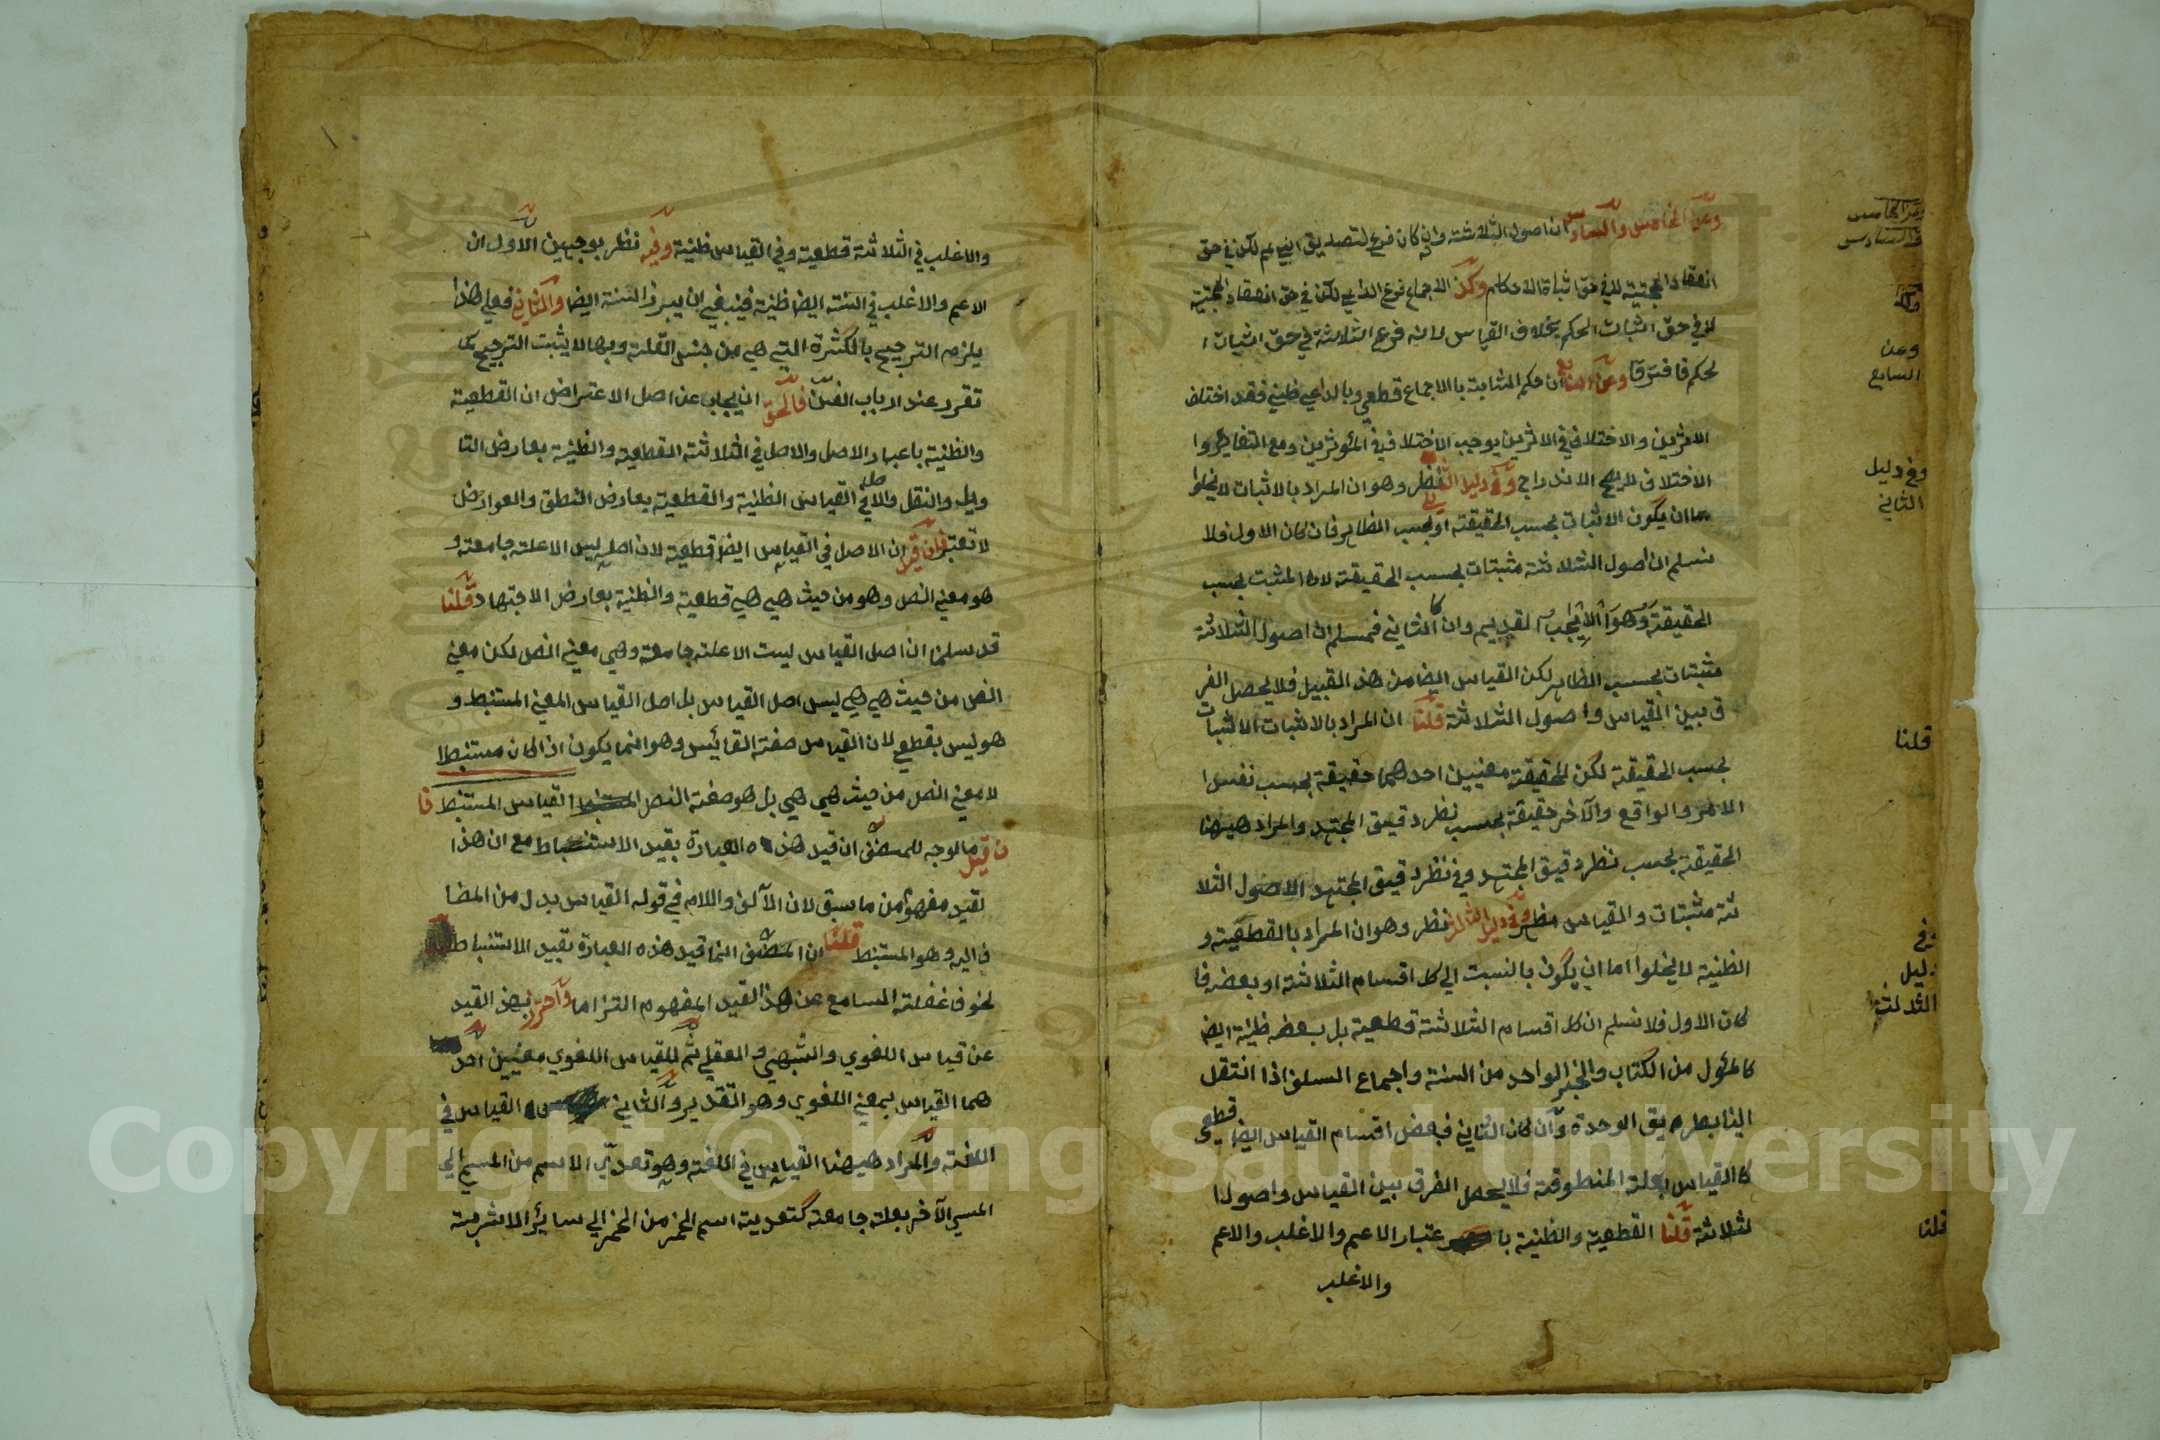 وعن الخامس والسادس ان اصول الثلاثة وان كان فرع لتصديق لكن في حق
انعقاد الحجتية لا في حق اثباة الاحكام وكذا الاجماع فرع الداعي لكن في حق انعقاد الحجتية
لا في حق اثبات الحكم بخلاف القياس لانه فرع الثلاثة في حق اثبات ا
لحكم فافترقا وعن السابع ان حكم الثابتة بالاجماع قطعي وبالداعي ظني فقد اختلف
الاثرين والاختلاف في الاثرين يوجب الاختلاف في المؤثرين ومع التغاير وا
الاختلاف لا يصح الاندراج وفي دليل الثاني نظر وهو ان المراد بالاثبات لا يخلوا
اما ان يكون الاثبات بحسب الحقيقة او بحسب المظاهر فان كان الاول فلا
نسلم ان اصول الثلاثة مثبتات بحسب الحقيقة لان المثبت بحسب
الحقيقة وهو القديم وان كا الثاني فمسلم ان اصول الثلاثة
مثبتات بحسب المظاهر لكن القياس ايضا من هذ القبيل فلا يحصل الفر
ق بين القياس واصول الثلاثة قلنا ان المراد بالاثبات الاثبات
بحسب الحقيقة لكن للحقيقة معنيين احدهما حقيقة بحسب نفس ا
الامر والواقع والآخر حقيقة بحسب نظر دقيق المجتهد والمراد هيهنا
الحقيقة بحسب نظر دقيق المجتهد وفي نظر دقيق المجتهد الاصول الثلا
ثة مثبتات والقياس مظهر وفي دليل الثالث نظر وهو ان المراد بالقطعية و
الظنية لا يخلوا اما ان يكون بالنسبت الى كل اقسام الثلاثة او بعضه فا
كان الاول فلا نسلم ان كل اقسام الثلاثة قطعية بل بعضه ظنية ايضا
كالمؤل من الكتاب والخبر الواحد من السنة واجماع السلف اذا انتقل
الينا بطريق الوحدة وان كان الثاني فبعض اقسام القياس ايضا قطعي
كا القياس بعلة المنطوقة فلا يحصل الفرق بين القياس واصول ا
لثلاثة قلنا القطعية والظنية با عتبار الاعم والاغلب والاعم
والاغلب
وعن الخامس
والسادس
وكذا
وعن
السابع
وفي دليل
الثاني
قلنا
وفي
دليل
الثالث
قلنا
والاغلب في الثلاثة قطعية وفي القياس ظنية وفيه نظر بوجهين الاول ان
الاعم والاغلب في السنة ايضا ظنية فينبغي ان يبرز السنة ايضا والثاني فعلى هذا
يلزم الترجيح بالكثرة التي هي من جنس القلة وبها لا يثبت الترجيح كما
تقرر عند ارباب الفن فالحق ان يجاب عن اصل الاعتراض ان القطعية
والظنية باعبار الاصل والاصل في الثلاثة القطعية والظنية بعارض التا
ويل والنقل والاصل في القياس الظنية والقطعية بعارض النطق والعوارض
لا تعتبر فان قيل ان الاصل في القياس ايضا قطعية لان اصله ليس الا علة جامعة و
هو معني النص وهو من حيث هي هي قطعية والظنية بعارض الاجتهاد قلنا
قد سلمنا ان اصل القياس ليست الا علة جامعة وهي معني النص لكن معني
النص من حيث هي هي ليس اصل القياس بل اصل القياس المعنى المستنبط و
هو ليس بقطعي لان القياس صفة القائس وهو انما يكون اذا كان مستنبطا
لا معني النص من حيث هي هي بل هو صفة النص القياس المستنبط فا
ن قيل ما لوجه للمصنف ان قيد هذه العبارة بقيد الاستنباط مع ان هذا
لقيد مفهوم من ما سبق لان الآلف واللام في قوله القياس بدل من المضا
ف اليه وهو المستنبط قلنا ان المصنف انما قيد هذه العبارة بقيد الاستنباط
لخوف غفلة السامع عن هذ القيد المفهوم التزاما واحترز بهذ القيد
عن قياس اللغوي والشبهي والعقلي ثم للقياس اللغوي معنيين احد
هما القياس بمعني اللغوي وهو التقدير والثاني القياس في
اللغة والمراد هيهنا القياس في اللغة وهو تعدي الاسم من المسمي الى
المسمي الآخر بعلة جامعة كتعدية اسم الخمر من الخمر الي سائر الاشربة
Copyright © King Saud University